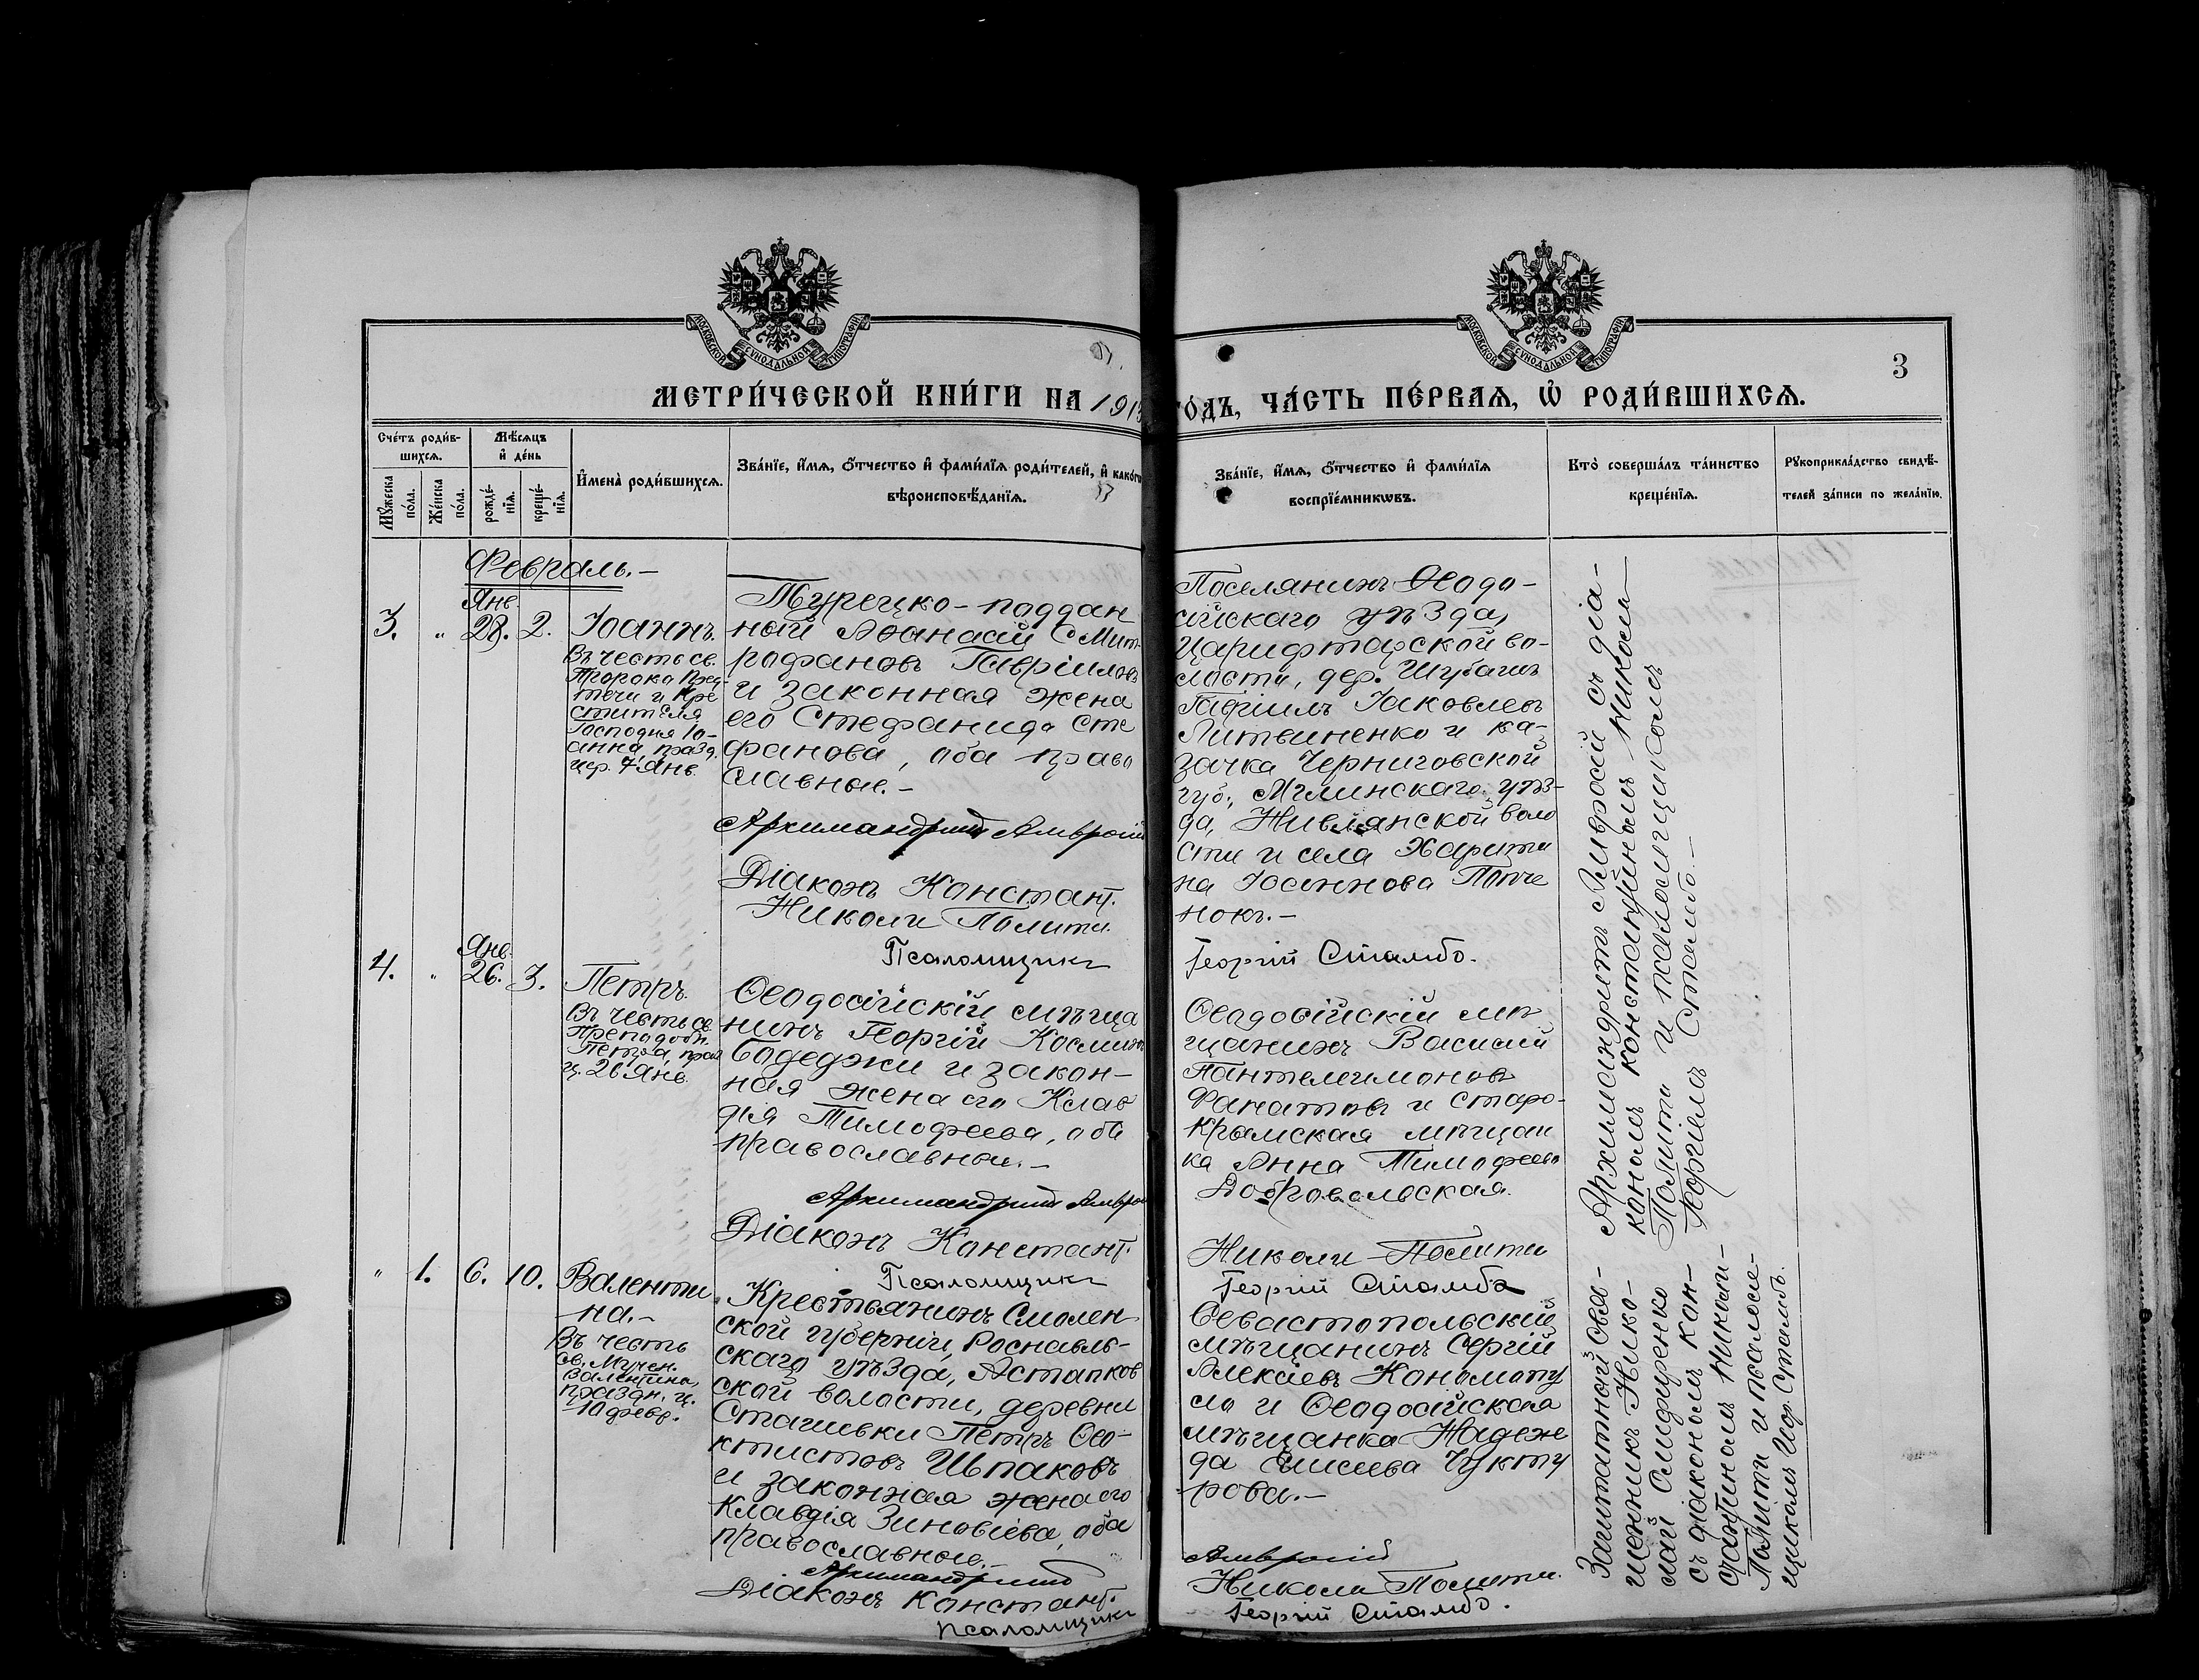 МОСКОВСКОЙ СѴНОДАЛЬНОЙ ТИПОГРАФІИ
МОСКОВСКОЙ СѴНОДАЛЬНОЙ ТИПОГРАФІИ
3
МЕТРИ́ЧЕСКОЙ КНИ́ГИ НА 191
ГО́ДЪ, ЧА́СТЬ ПЕ́РВАѦ, Ѡ҆ РОДИ́ВШИХСѦ.
Сче́тъ роди́в-
шихсѧ.
Мѣ́сѧцъ
и҆ де́нь
Мꙋ́жеска
по́ла.
Же́нска
по́ла.
рожде́-
нїѧ.
креще́-
нїѧ.
И҆мена̀ роди́вшихсѧ.
Зва́нїе, и҆́мѧ, ѻ҆́тчество и҆ фами́лїѧ роди́телей, и҆ како́гѡ
вѣроисповѣ́данїѧ.
Зва́нїе, и҆́мѧ, ѻ҆́тчество и҆ фами́лїѧ
воспрїе́мникѡвъ.
Кто̀ соверша́лъ та́инство
креще́нїѧ.
Рꙋкоприкла́дство свидѣ́-
телей за́писи по жела́нїю.
Февраль.-
Янв.
3. " 28. 2. Іоаннъ.
Въ честь св.
Пророка Пред-
течи и Кре
стителя
Господня Іо-
анна, празд.
цер. 7 Янв.
Турецко-поддан
ный Аѳанасій Мит-
рофановъ Гавріиловъ
и законная жена
его Стефанида Сте
фанова, оба право
славные.-
Архимандритъ Амвросій
Діаконъ Констант.
Николи Полити.
Псаломщикъ
Поселянинъ Ѳеодо-
сійскаго уѣзда,
во-
лости, дер. Шубашъ
Гавріилъ Іаковлевъ
Литвиненко и ка-
зачка Черниговской
губ., Мглинскаго уѣз-
да, Нивлянской воло
сти и села Харити
на Іоаннова Попче
нокъ.-
Георгій Стамбо.
Архимандритъ Амвросій съ діа-
кономъ Константиномъ Николи-
Полити и псаломщикомъ
Георгіемъ Стамбо.-
Янв.
4. " 26. 3. Петръ.
Въ честь св.
Преподобн.
Петра, празд
ц. 26 Янв.
Ѳеодосійскій мѣща
нинъ Георгій Косминъ
Бадеджи и закон-
ная жена его Клав
дія Тимофеева, оба
православные.-
Архимандритъ Амвро
Діаконъ Констант.
Псаломщикъ
Ѳеодосійскій мѣ
щанинъ Василій
Пантелеимоновъ
Фанатовъ и старо-
крымская мѣщан
ка Анна Тимофеева
Добровольская.
Николи Полити
Георгій Стамбо
" 1. 6. 10. Валенти
на.-
Въ честь
св. Мучен.
Валентины,
праздн. ц.
10 февр.
Крестьянинъ Смолен-
ской губерніи, Рославль-
скаго уѣзда, Астапков
ской волости, деревни
Петръ Ѳео-
ктистовъ Шпаковъ
и законная жена его
Клавдія Зиновіева, оба
православные.-
Архимандритъ
Діаконъ Констант.
Псаломщикъ
Севастопольскій
мѣщанинъ Сергій
Алексіевъ Кономопу
ло и Ѳеодосійская
мѣщанка Надеж
да Елисеева Чукту
рова.-
Амвросій
Николи Полити.
Георгій Стамбо.
Заштатный свя-
щенникъ Нико-
лай
съ діакономъ Кон-
стантиномъ Николи-
Полити и псалом-
щикомъ Геор. Стамбо.